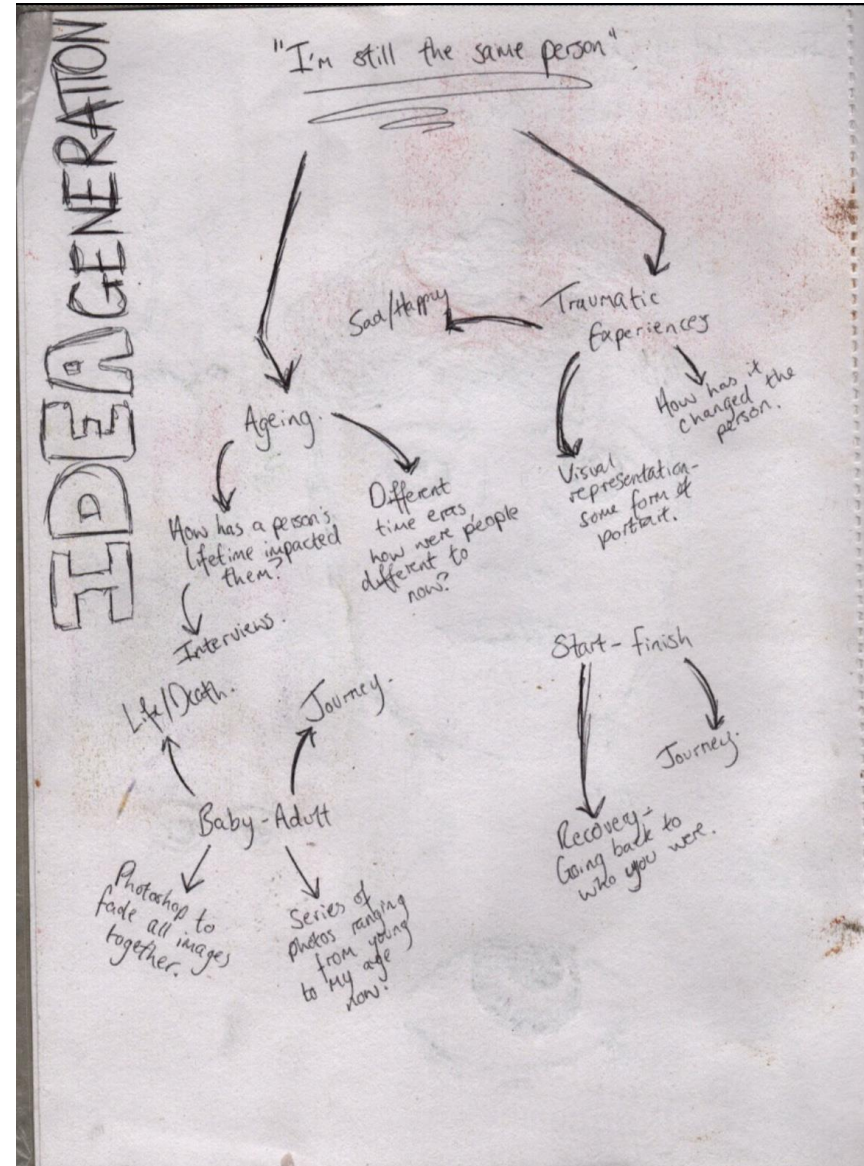 IDEA GENERATION
"I'm still the same person"
Sad/Happy
Traumatic
Experiences
How has it
changed the
person.
Visual
representation-
some form of
portrait.
Ageing.
How has a person's
lifetime impacted
them?
Interviews.
Different
time eras,
how were people
different to
now?
Start-finish
Journey.
Recovery-
Going back to
who you were.
Life/Death.
Journey.
Baby-Adult
Photoshop to
fade all images
together.
Series of
photos ranging
from young
to my age
now.